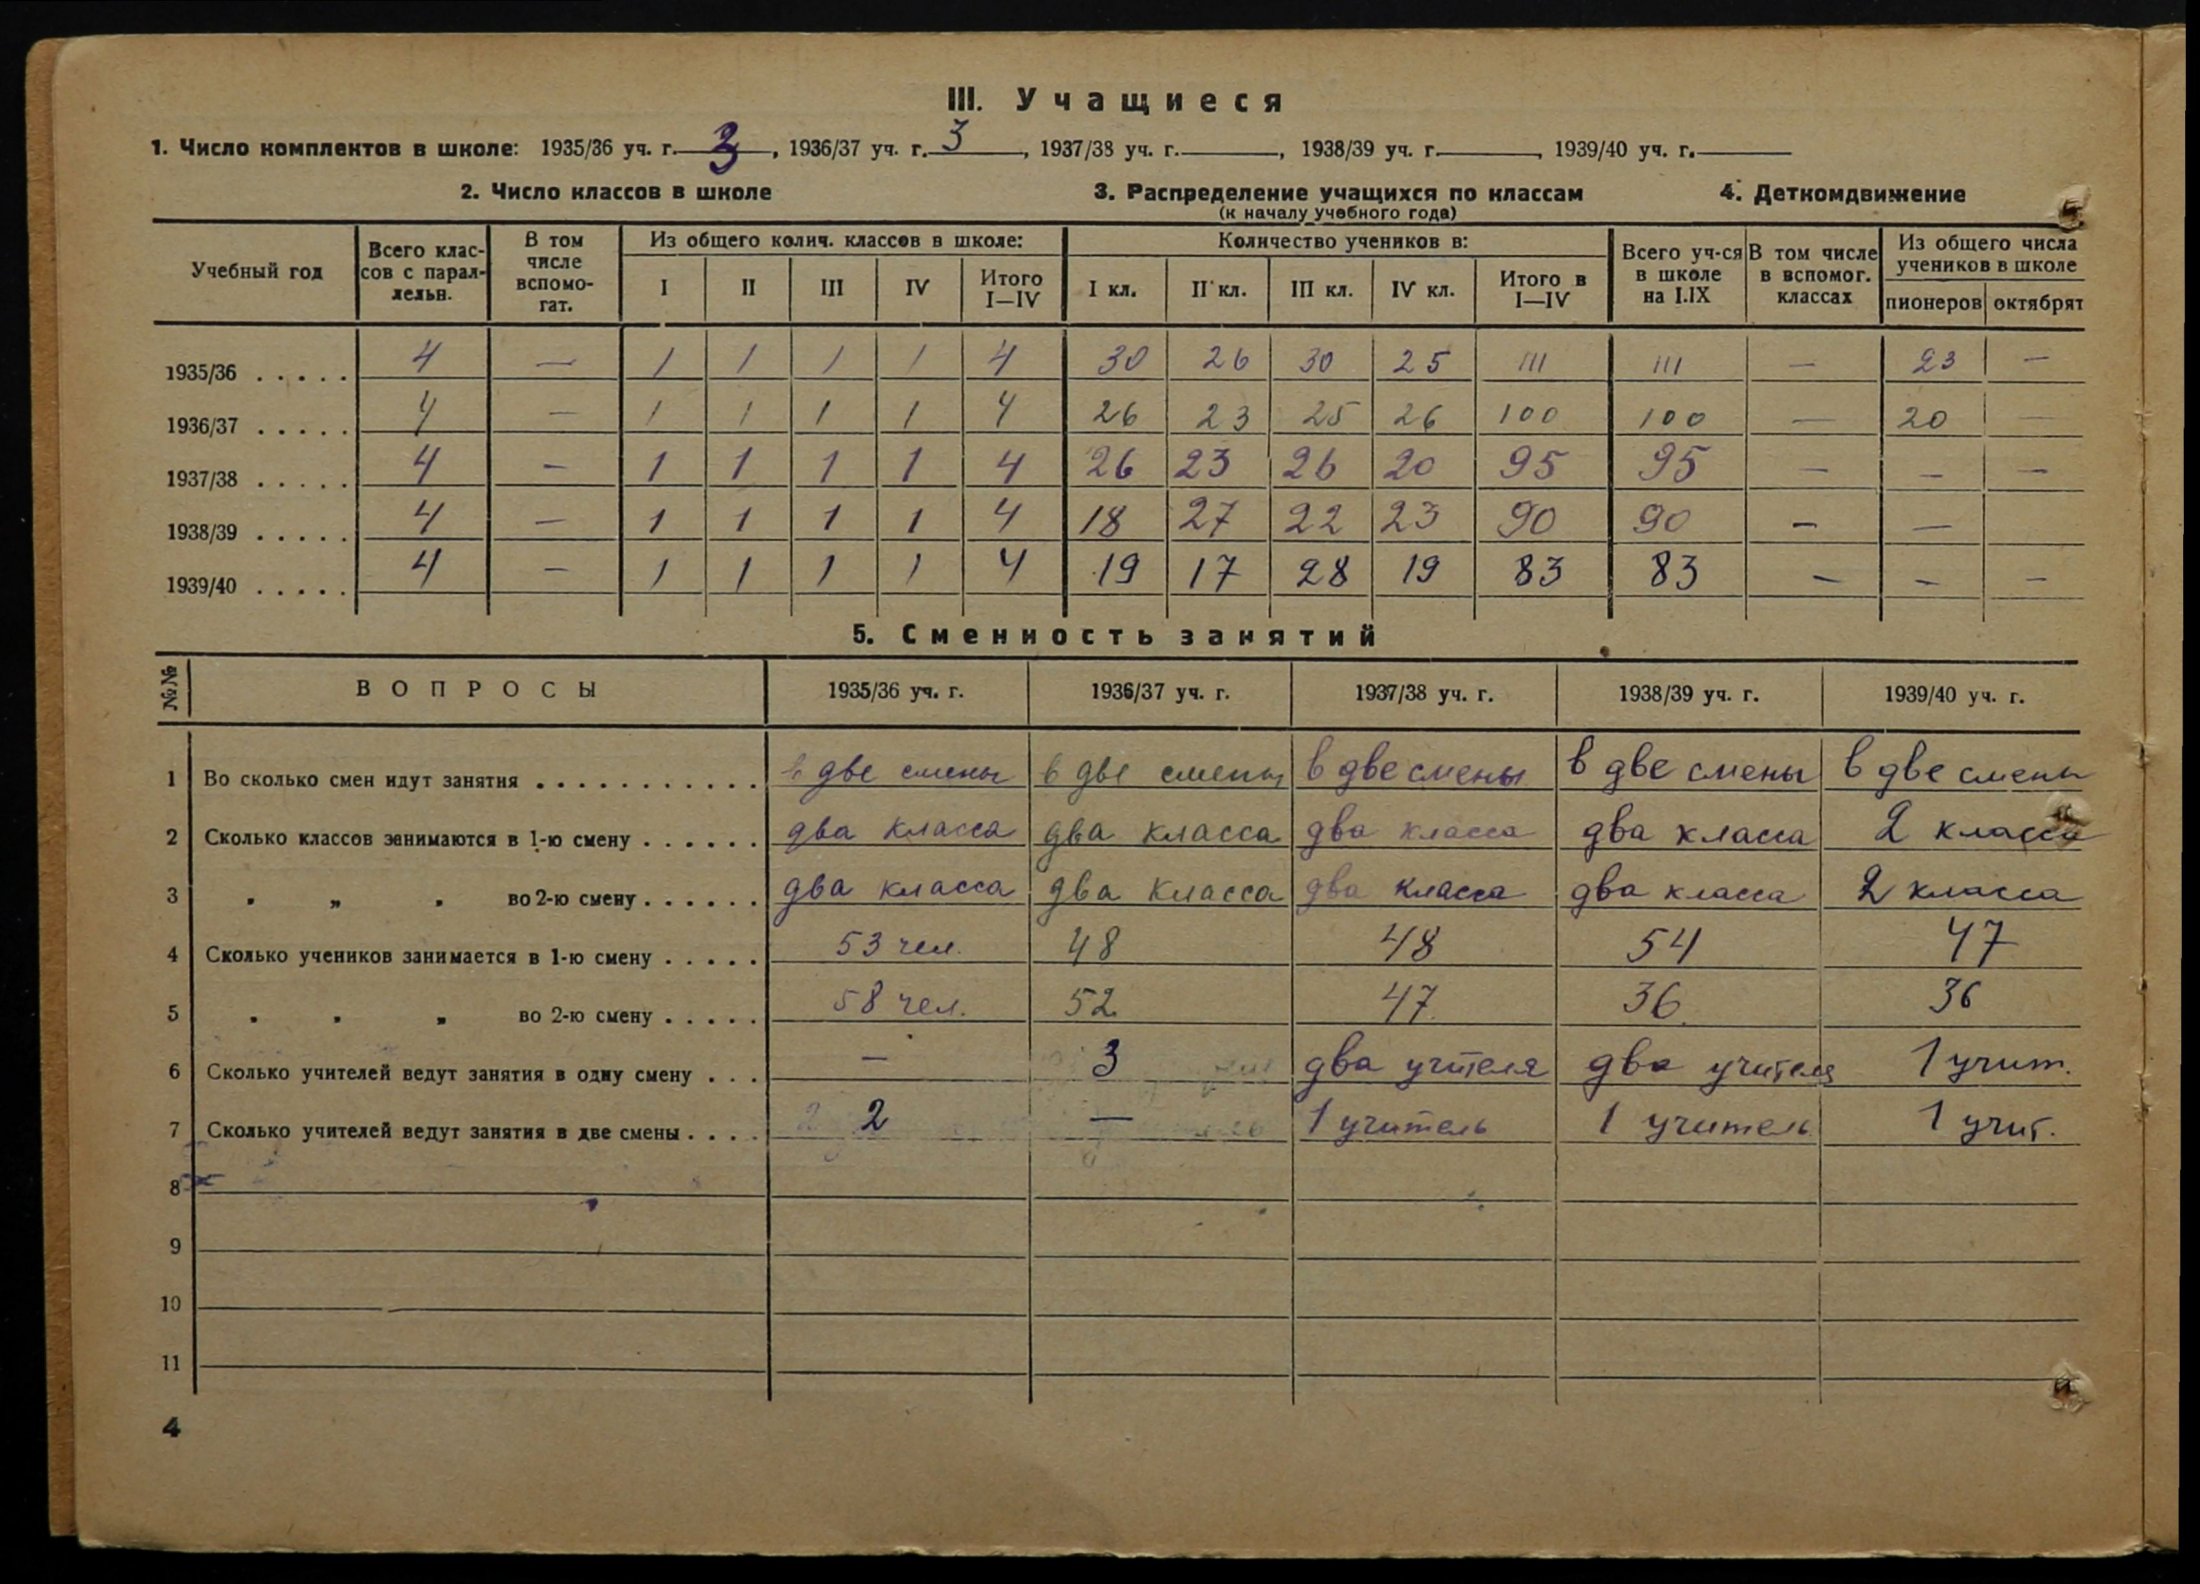 III. Учащиеся
1. Число комплектов в школе: 1935/36 уч. г. 3, 1936/37 уч. г. 3, 1937/38 уч. г. , 1938/39 уч. г. , 1939/40 уч. г.
2. Число классов в школе 3. Распределение учащихся по классам 4. Деткомдвижение
(к началу учебного года)
Учебный год Всего классов с параллельн. В том числе вспомогат. Из общего колич. классов в школе: Количество учеников в: Всего уч-ся в школе на I.IX В том числе в вспомог. классах Из общего числа учеников в школе
I II III IV Итого I—IV I кл. II кл. III кл. IV кл. Итого в I—IV пионеров октябрят
1935/36 . . . . . 4 — 1 1 1 1 4 30 26 30 25 111 111 — 23 —
1936/37 . . . . . 4 — 1 1 1 1 4 26 23 25 26 100 100 — 20 —
1937/38 . . . . . 4 — 1 1 1 1 4 26 23 26 20 95 95 — — —
1938/39 . . . . . 4 — 1 1 1 1 4 18 27 22 23 90 90 — —
1939/40 . . . . . 4 — 1 1 1 1 4 19 17 28 19 83 83 — — —
5. Сменность занятий
№№ ВОПРОСЫ 1935/36 уч. г. 1936/37 уч. г. 1937/38 уч. г. 1938/39 уч. г. 1939/40 уч. г.
1 Во сколько смен идут занятия . . . . . . . . . . . в две смены в две смены в две смены в две смены в две смены
2 Сколько классов занимаются в 1-ю смену . . . . . . два класса два класса два класса два класса 2 класса
3 „ „ „ во 2-ю смену . . . . . . два класса два класса два класса два класса 2 класса
4 Сколько учеников занимается в 1-ю смену . . . . . 53 чел. 48 48 54 47
5 „ „ „ во 2-ю смену . . . . . 58 чел. 52 47 36 36
6 Сколько учителей ведут занятия в одну смену . . . — 3 два учителя два учителя 1 учит.
7 Сколько учителей ведут занятия в две смены . . . . 2 — 1 учитель 1 учитель 1 учит.
8
9
10
11
4